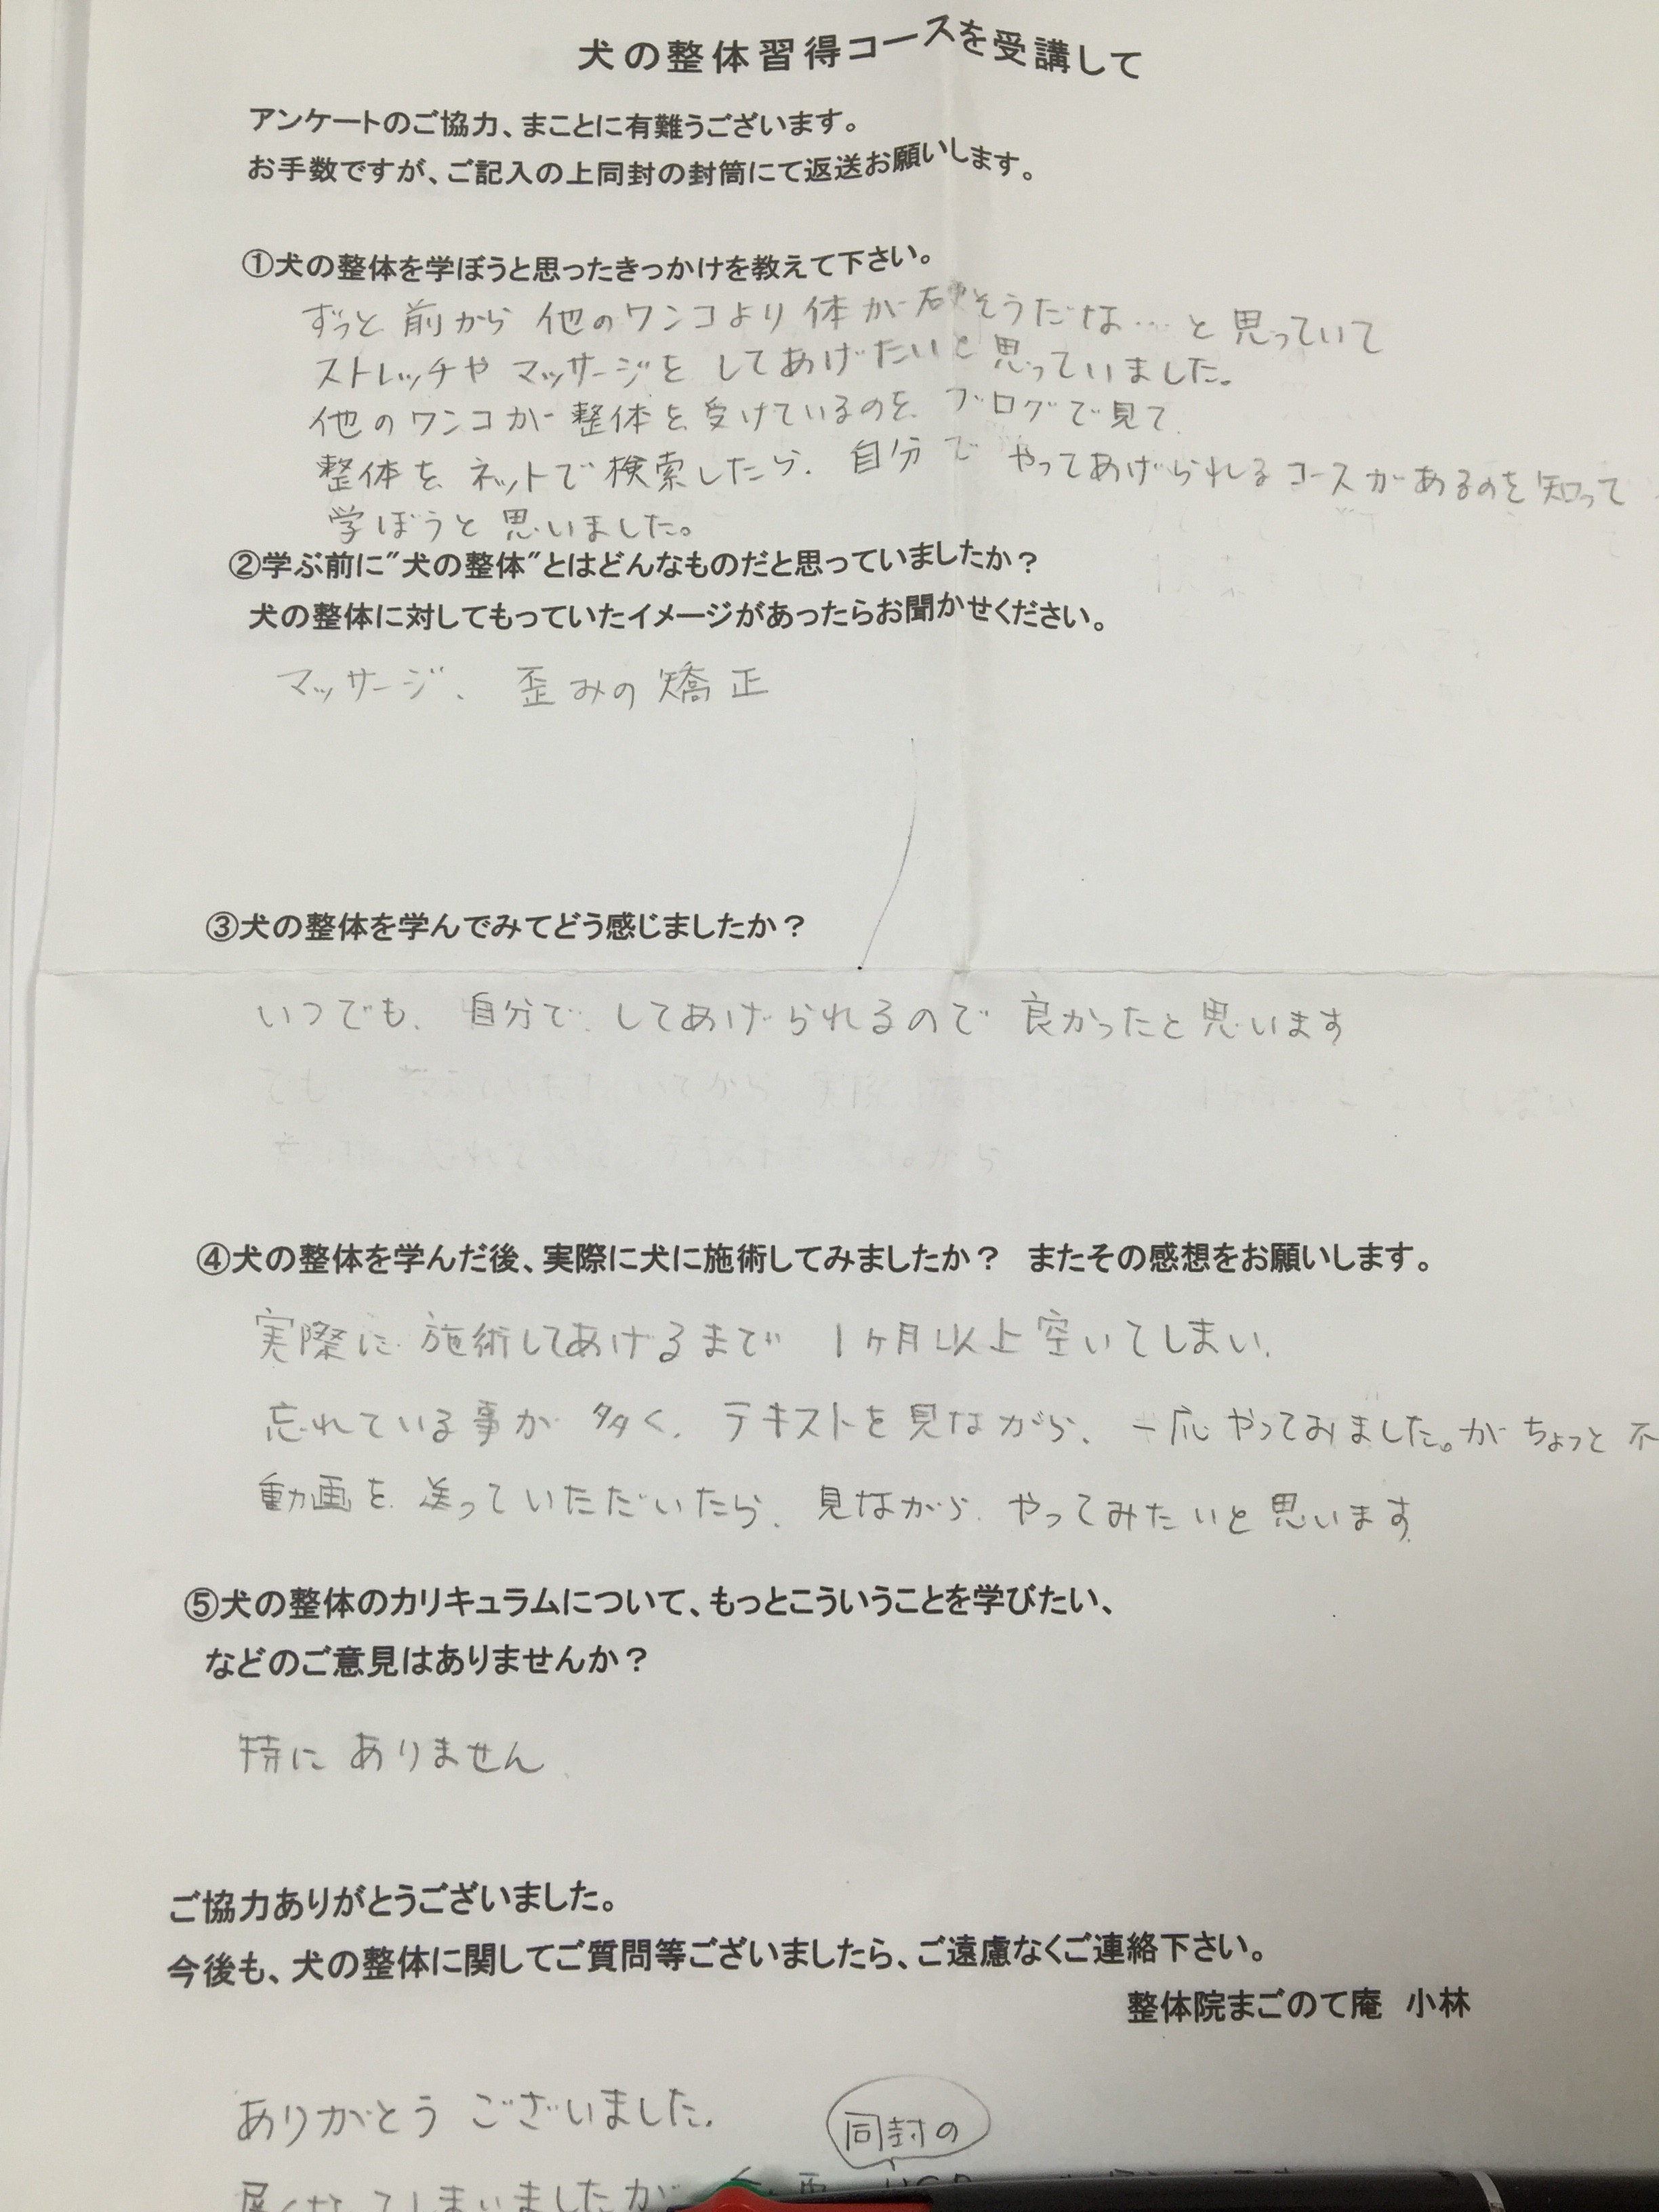 犬の整体習得コースを受講して
アンケートのご協力、まことに有難うございます。
お手数ですが、ご記入の上同封の封筒にて返送お願いします。
①犬の整体を学ぼうと思ったきっかけを教えて下さい。
ずっと前から 他のワンコより 体が硬そうだな… と思っていて
ストレッチや マッサージを してあげたいと 思っていました。
他のワンコが 整体を 受けているのを ブログで見て
整体を ネットで検索したら、自分で やってあげられるコースがあるのを知って
学ぼうと 思いました。
②学ぶ前に"犬の整体"とはどんなものだと思っていましたか?
犬の整体に対してもっていたイメージがあったらお聞かせください。
マッサージ、 歪みの矯正
③犬の整体を学んでみてどう感じましたか?
いつでも、自分で してあげられるので 良かったと思います
④犬の整体を学んだ後、実際に犬に施術してみましたか? またその感想をお願いします。
実際に 施術してあげるまで 1ヶ月以上空いてしまい、
忘れている事が 多く、テキストを見ながら、一応やってみました。が ちょっと 不
動画を 送っていただいたら、見ながら やってみたいと思います
⑤犬の整体のカリキュラムについて、もっとこういうことを学びたい、
などのご意見はありませんか?
特に ありません
ご協力ありがとうございました。
今後も、犬の整体に関してご質問等ございましたら、ご遠慮なくご連絡下さい。
整体院まごのて庵 小林
ありがとう ございました。
同封の
遅くなってしまいましたが